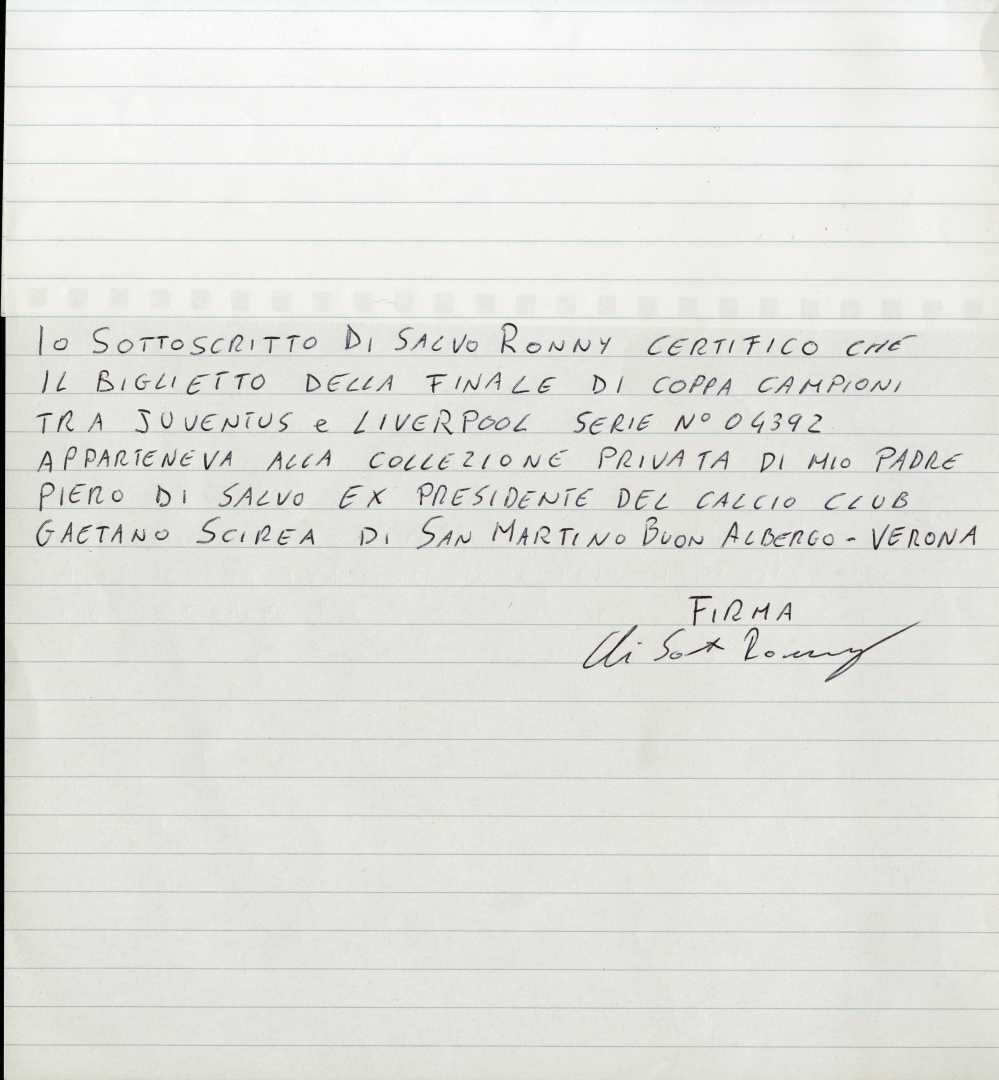 Io SOTTOSCRITTO DI SALVO RONNY CERTIFICO CHE
IL BIGLIETTO DELLA FINALE DI COPPA CAMPIONI
TRA JUVENTUS e LIVERPOOL SERIE N° 04392
APPARTENEVA ALLA COLLEZIONE PRIVATA DI MIO PADRE
PIERO DI SALVO EX PRESIDENTE DEL CALCIO CLUB
GAETANO SCIREA DI SAN MARTINO BUON ALBERGO - VERONA
FIRMA
Di Salvo Ronny